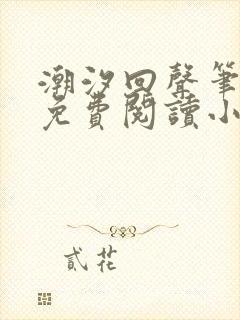 潮汐回聲筆
免費閱讀小
貳花